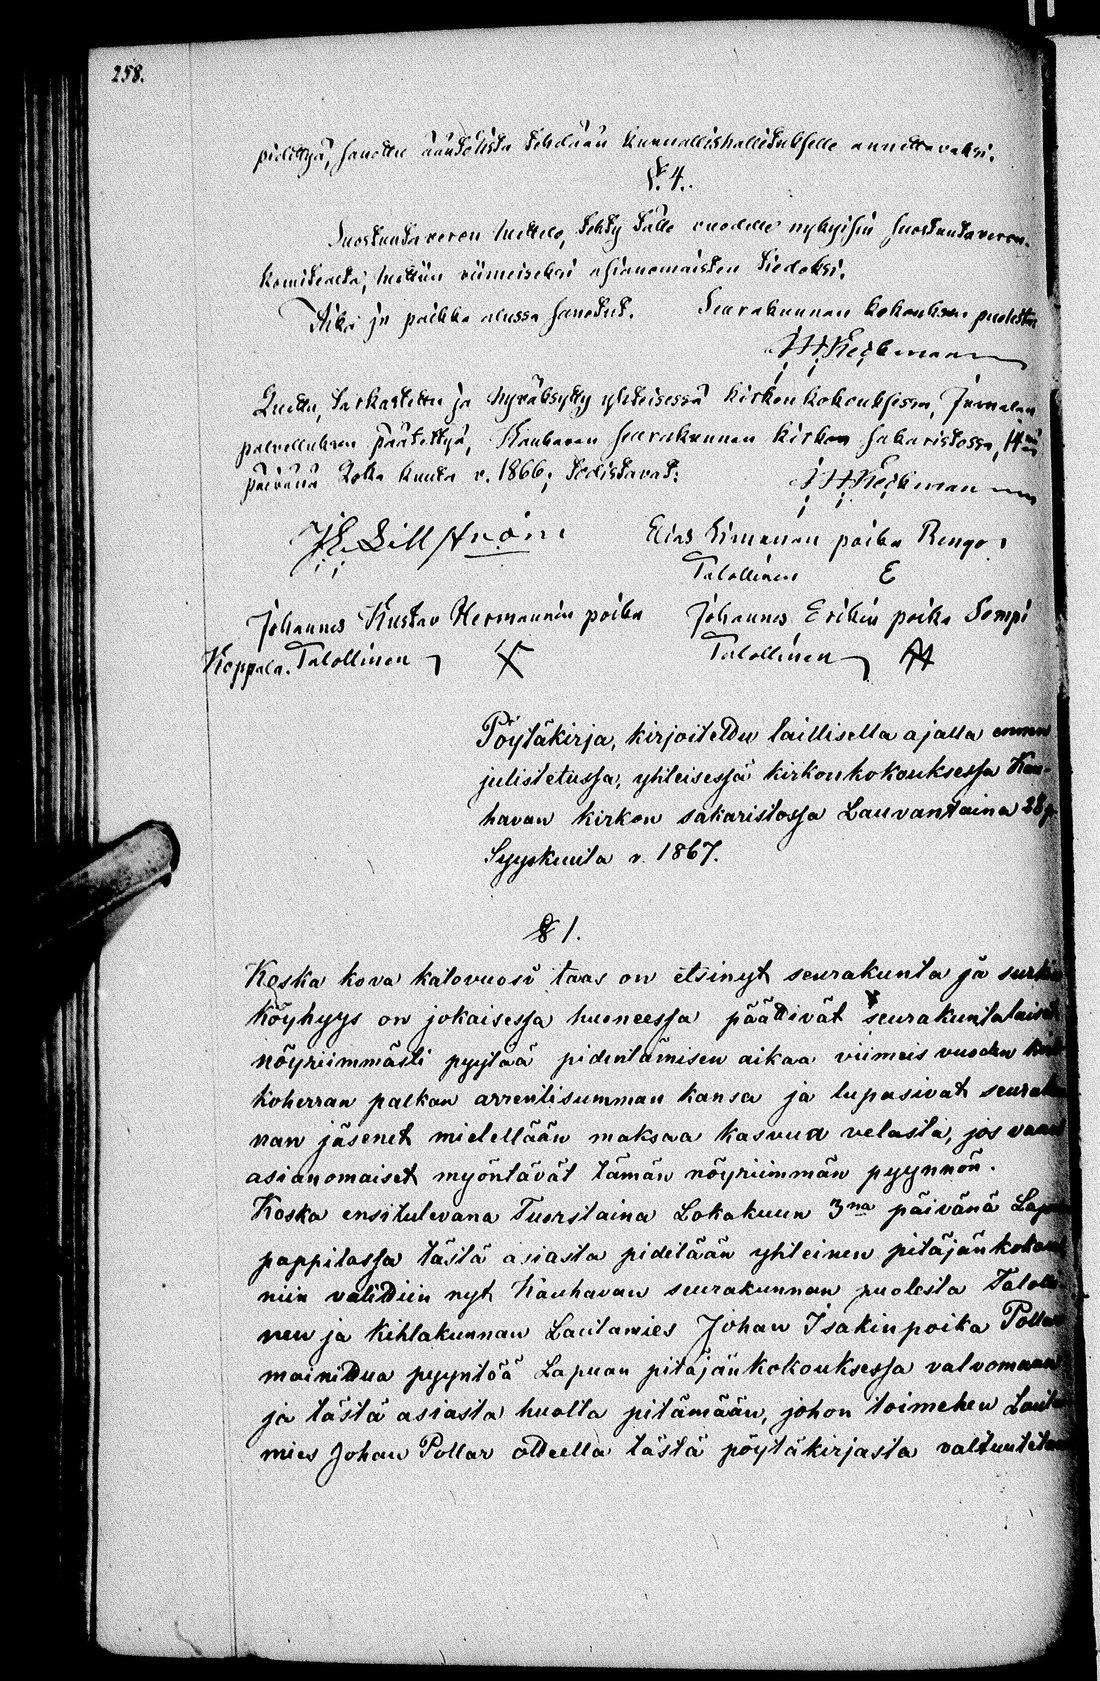 258.
pidettyä, sanottu ääntölista tehdään kunnallishallitukselle annettavaksi.
§. 4.
Suostuntaveron luettelo, tehty tälle vuodelle nykyisin suostuntaveron-
komitealta, luettiin viimeiseksi asianomaisten tiedoksi.
Aika ja paikka alussa sanotut. Seurakunnan kokouksen puolesta
Luettu, tarkastettu ja hyväksytty yhteisessä kirkonkokouksessa, Jumalan
palvelluksen päätettyä, Kauhavan seurakunnan kirkon sakaristossa, 14
päivänä Loka kuuta v. 1866; todistavat:
Elias Simunan poika Rengo,
Talollinen E
Johannes Kustav Hermannin poika Johannes Erikin poika Sompi
Koppala. Talollinen Talollinen
Pöytäkirja, kirjoitettu laillisella ajalla ennen
julistetussa, yhteisessä kirkonkokouksessa Kau-
havan kirkon sakaristossa Lauvantaina 28 p.
Syyskuuta v. 1867.
§ 1.
Koska kova katovuosi taas on etsinyt seurakunta ja surkia
köyhyys on jokaisessa huoneessa päättivät seurakuntalaiset
nöyriimmästi pyytää pidentämisen aikaa viimeis vuoden kirk
koherran palkan arrentisumman kansa ja lupasivat seurakun
nan jäsenet mielellään maksaa kasvun velasta, jos vaan
asianomaiset myöntävät tämän nöyriimmän pyynnön.
Koska ensitulevana Tuorstaina Lokakuun 3na päivänä Lapuan
pappilassa tästä asiasta pidetään yhteinen pitäjänkokous
niin valittiin nyt Kauhavan seurakunnan puolesta Talolli
nen ja Kihlakunnan Lautamies Johan Isakinpoika Pollar
mainittua pyyntöä Lapuan pitäjänkokouksessa valvomaan
ja tästä asiasta huolta pitämään, johon toimehen Lauta
mies Johan Pollar otteella tästä pöytäkirjasta valtuutetaan